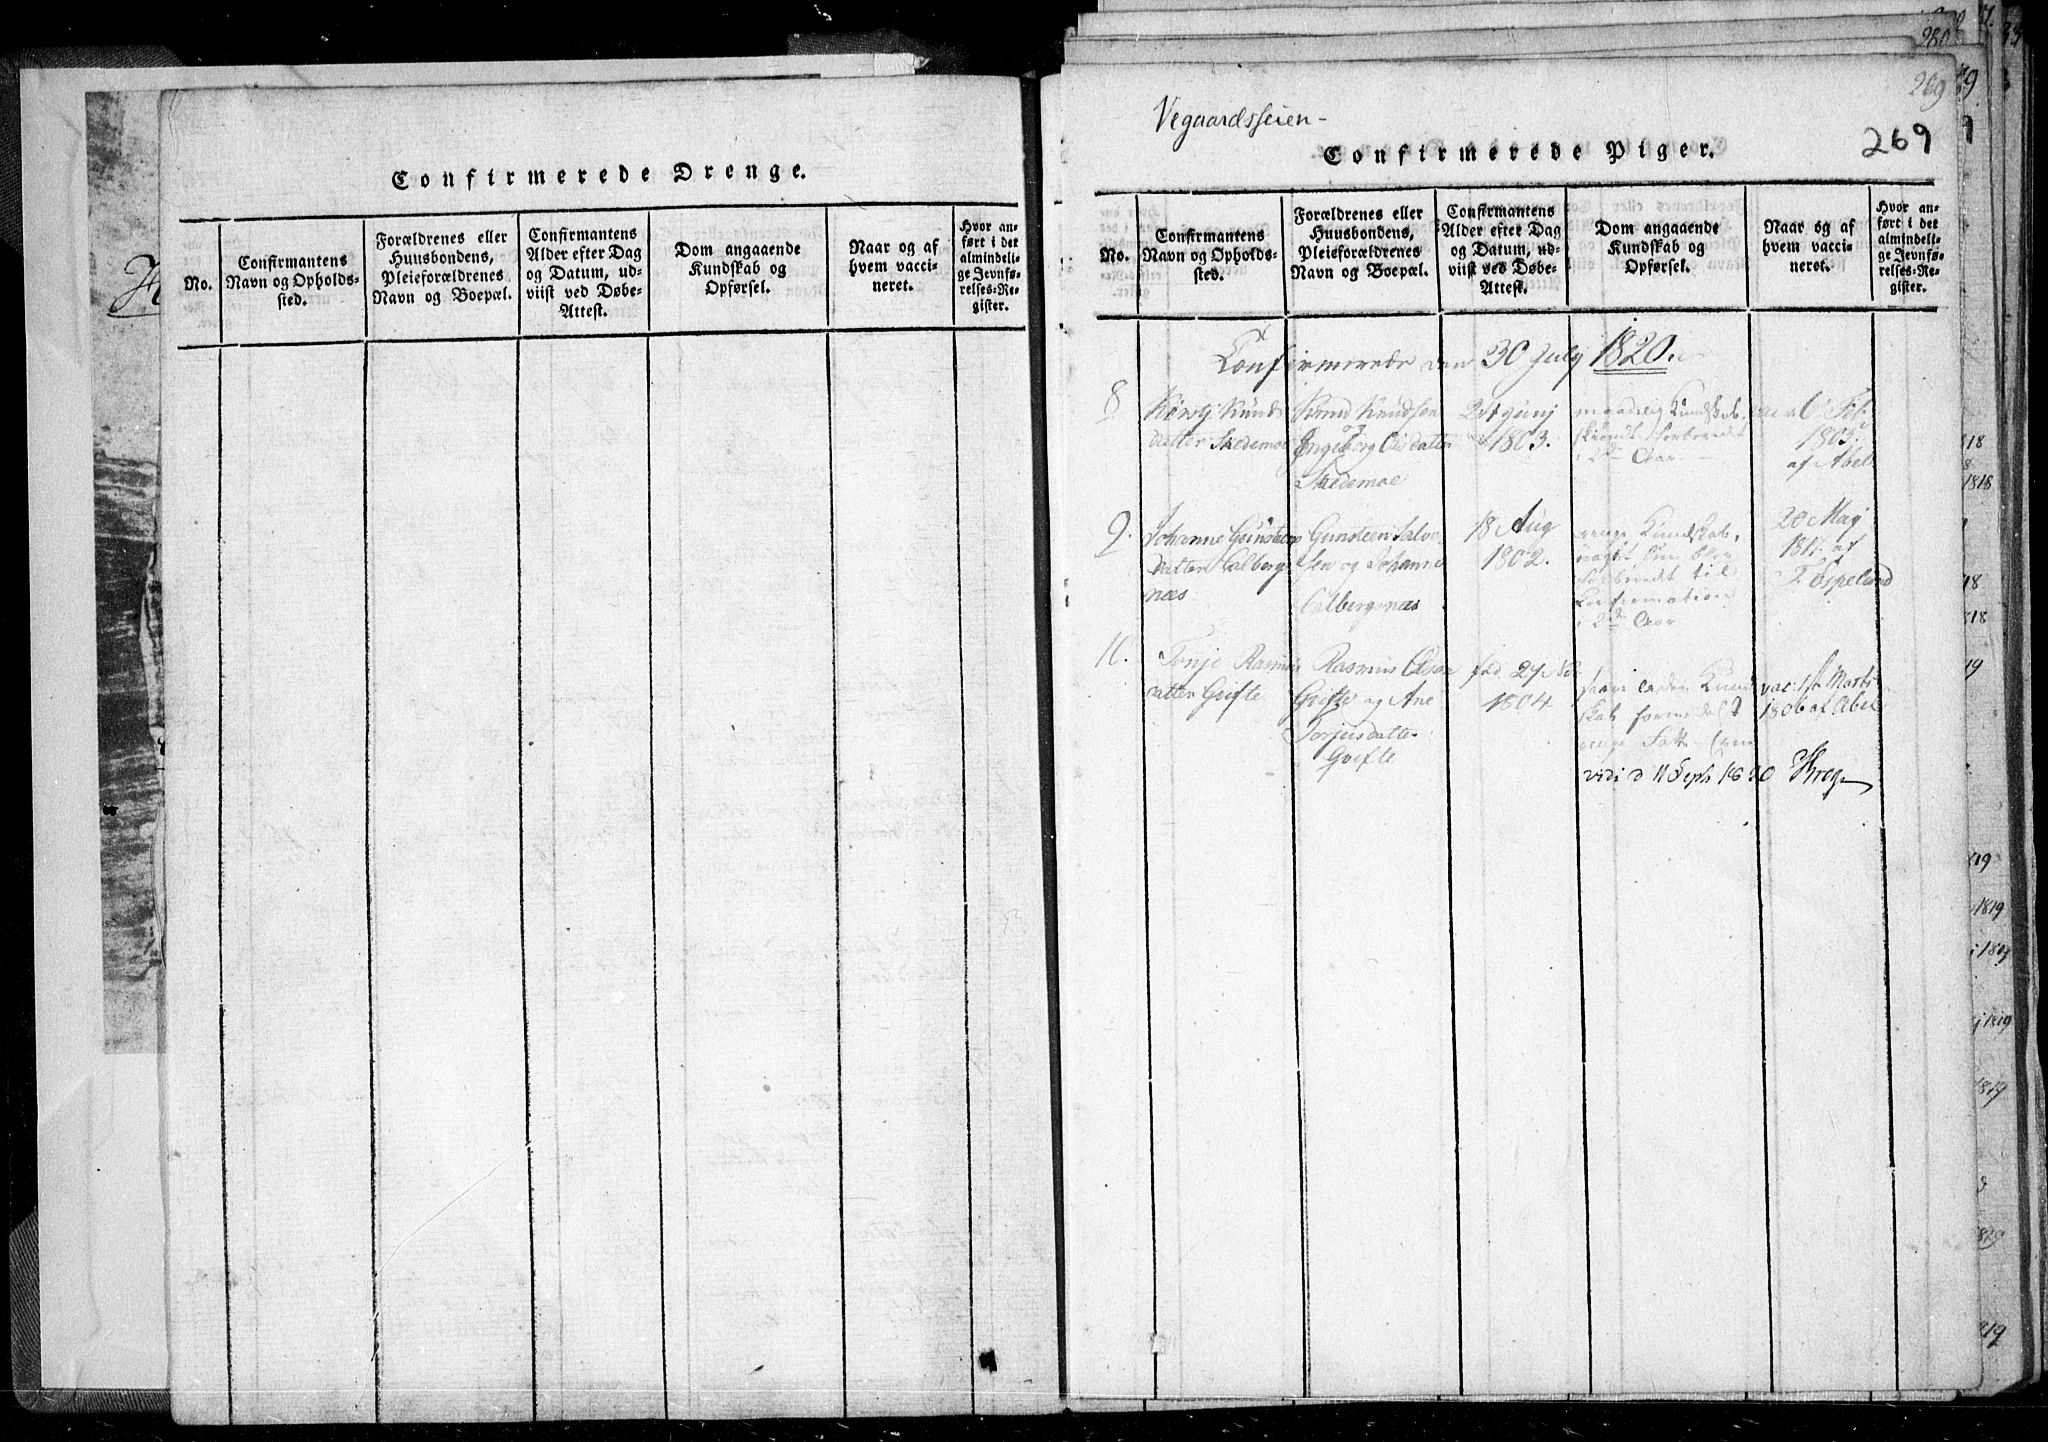 Confirmerede Drenge.
No.
Confirmantens
Navn og Opholds-
sted.
Forældrenes eller
Huusbondens,
Pleieforældrenes
Navn og Boepæl.
Confirmantens
Alder efter Dag
og Datum, ud-
viist ved Døbe-
Attest.
Dom angaaende
Kundskab og
Opførsel.
Naar og af
hvem vacci-
neret.
Hvor an-
ført i det
almindeli-
ge Jevnfø-
relses-Re-
gister.
Vegaardsseien-
269
269
Confirmerede Piger.
No.
Confirmantens
Navn og Opholds-
sted.
Forældrenes eller
Huusbondens,
Pleieforældrenes
Navn og Boepæl.
Confirmantens
Alder efter Dag
og Datum, ud-
viist ved Døbe-
Attest.
Dom angaaende
Kundskab og
Opførsel.
Naar og af
hvem vacci-
neret.
Hvor an-
ført i det
almindeli-
ge Jevnfø-
relses-Re-
gister.
Confirmerede den 30 July 1820.
8
Kirstj Knuds
datter Skedemoe
Knud Knudsen
Ingeborg Olsdatter
Skedemoe
Junj
1803.
maadelig Kundskab,
forberedt
i 2de Aar.
6 Feb
1805.
af Abel
9.
Johanne Gunsteens
datter Calbergs
næs
Gunsteen Salve
sen og Johanne
Calbergsnæs
18 Aug
1802.
Kundskab,
forberedt til
Confirmation
i 2de Aar
20 Maj
af
T. Espeland
10.
Tonje Rasmus
datter Gvifte
Rasmus Olsen
Gvifte og Ane
Torjusdatter
Gvifte
fød 27 No
1804
Kund
skab
vac: Marti
1806 af Abel
vidi d 11 Septr 1820 Krog